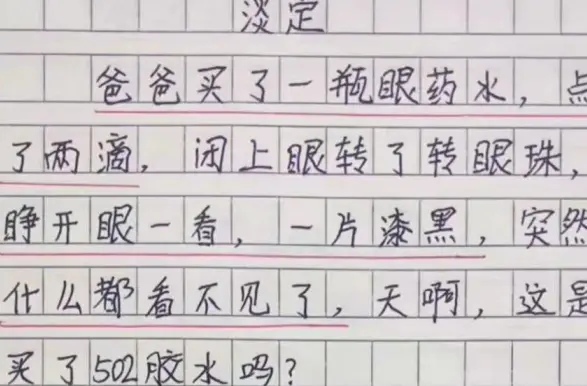 淡定
爸爸买了一瓶眼药水，点
了两滴，闭上眼转了转眼珠，
睁开眼一看，一片漆黑，突然
什么都看不见了，天啊，这是
买了502胶水吗？